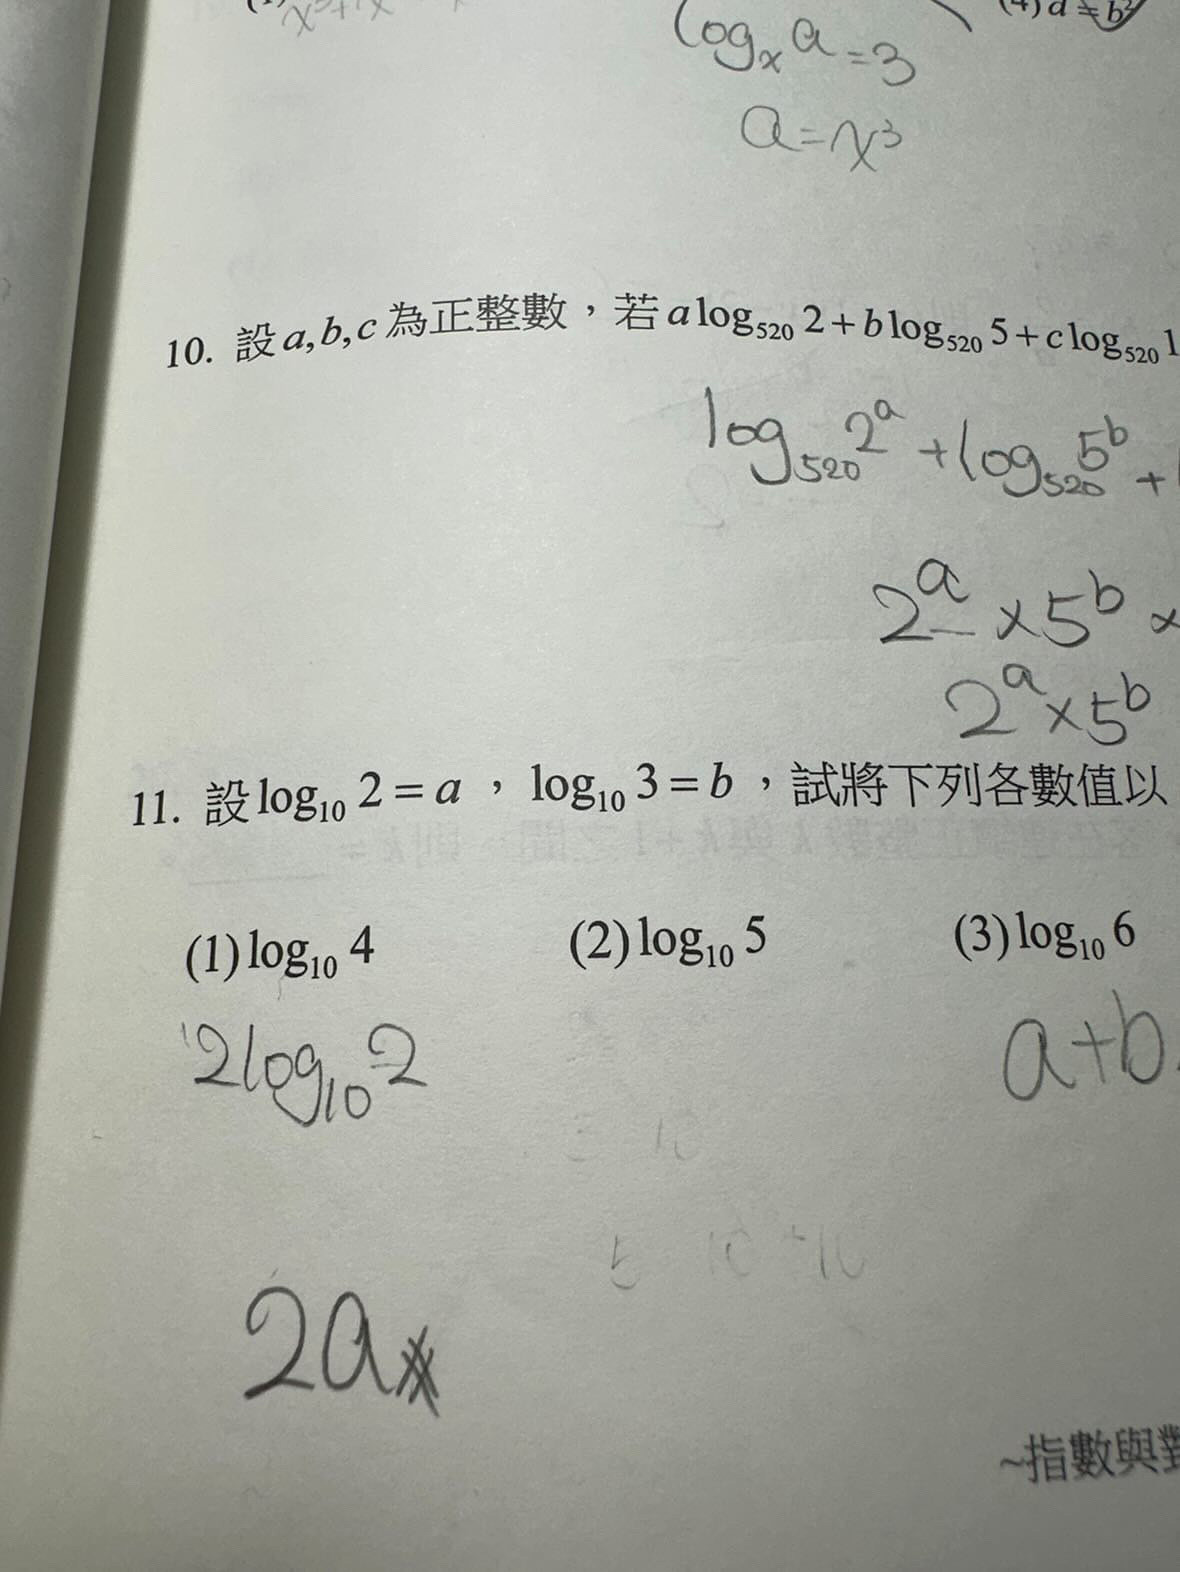 (4) d = b²
logₓ a = 3
a = x³
10. 設 a, b, c 為正整數，若 a log₅₂₀ 2 + b log₅₂₀ 5 + c log₅₂₀ 1
log₅₂₀ 2ᵃ + log₅₂₀ 5ᵇ +
2ᵃ × 5ᵇ ×
2ᵃ × 5ᵇ
11. 設 log₁₀ 2 = a ， log₁₀ 3 = b ，試將下列各數值以
(1) log₁₀ 4 (2) log₁₀ 5 (3) log₁₀ 6
2log₁₀ 2 a+b
2a
~指數與對